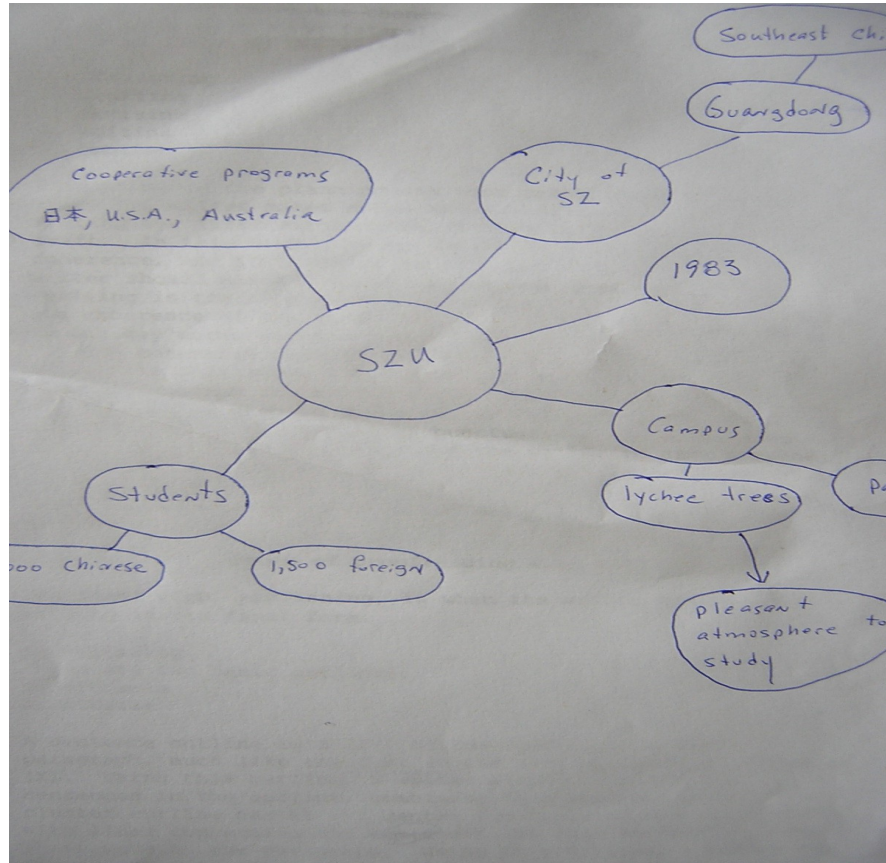 Southeast Chi
Guangdong
Cooperative programs
日本, U.S.A., Australia
City of
SZ
1983
SZU
Campus
Students
lychee trees
000 Chinese
1,500 foreign
pleasant
atmosphere to
study